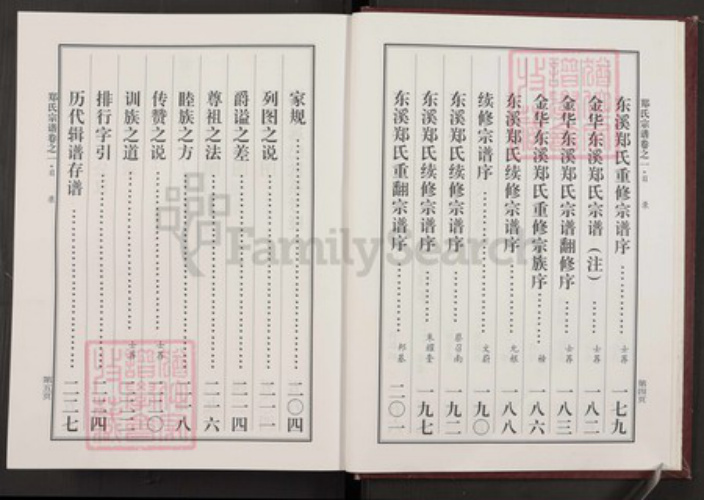 郑氏宗谱卷之一·目 录
第四页
东溪郑氏重修宗谱序……士荐 一七九
金华东溪郑氏宗谱（注）……士荐 一八二
金华东溪郑氏宗谱翻修序……士荐 一八三
金华东溪郑氏重修宗族序…… 一八六
东溪郑氏续修宗谱序……允植 一八八
续修宗谱序……文蔚 一九〇
东溪郑氏续修宗谱序……蔡召南 一九二
东溪郑氏续修宗谱序……朱耀奎 一九七
东溪郑氏重翻宗谱序……郑基 二〇一
家规……二〇四
列图之说……二一一
爵谥之差……二一四
尊祖之法……二一六
睦族之方……二一八
传赞之说……士荐 二二〇
训族之道……士荐
排行字引……二二四
历代辑谱存谱……二二七
郑氏宗谱卷之一·目 录
第五页
FamilySearch